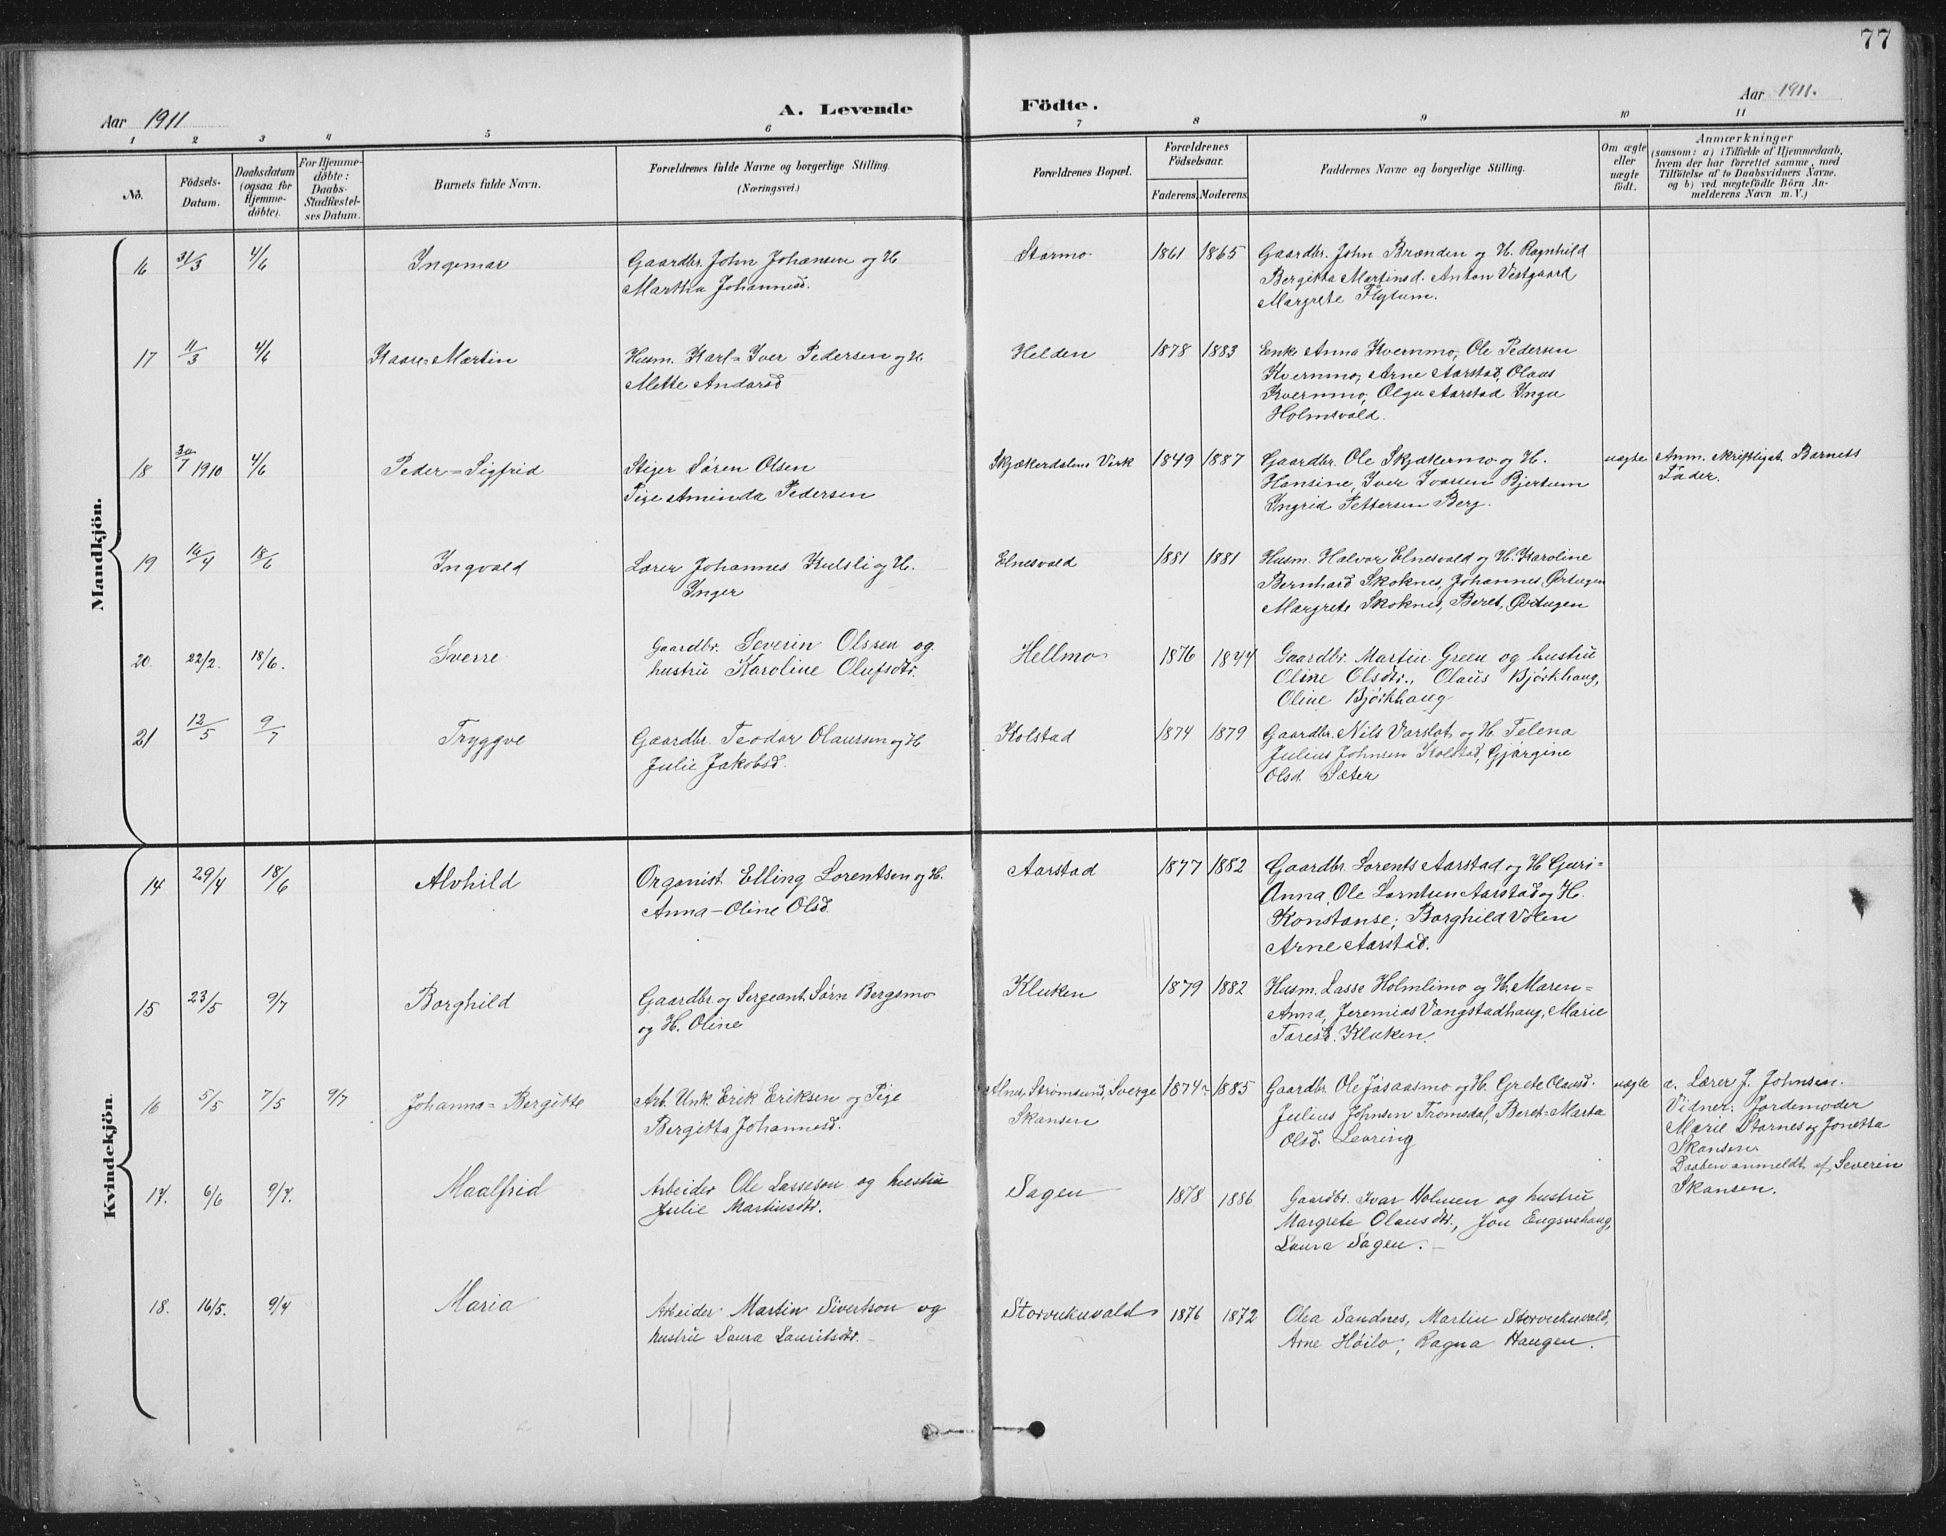 77
Aar 1911
A. Levende Födte.
Aar 1911.
1 2 3 4 5 6 7 8 9 10 11
No.
Födsels-
Datum.
Daabsdatum
(ogsaa for
Hjemme-
döbte).
For Hjemme-
döbte:
Daabs-
Stadfæstel-
ses Datum.
Barnets fulde Navn.
Forældrenes fulde Navne og borgerlige Stilling.
(Næringsvei.)
Forældrenes Bopæl.
Forældrenes
Födselsaar.
Faderens. Moderens.
Faddernes Navne og borgerlige Stilling.
Om ægte
eller
uægte
födt.
Anmærkninger
(saasom: a) i Tilfælde af Hjemmedaab,
hvem der har forrettet samme, med
Tilföielse af to Daabsvidners Navne,
og b) ved uægtefödte Börn An-
melderens Navn m. V.)
Mandkjön.
16 31/3 4/6 Ingemar
Gaardbr. John Johansen og H
Martha Johannesd.
Stormo 1861 1865
Gaardbr. John Brænden og H. Ragnhild
Bergitta Martinsd. Anton Vestgaard
Margrete Flytum.
17 11/3 4/6 Kaare-Martin
Husm. Karl-Iver Pedersen og H.
Mette Andersd
Helden 1878 1883
Enke Anna Kvernmo, Ole Pedersen
Kvernmo, Arne Aarstad, Olaus
Kvernmo, Olga Aarstad Inga
Holmsvald.
18 30/7 1910 4/6 Peder-Sigfrid
Stiger Søren Olsen
Pige Aminda Pedersen
Skjækerdalens Verk 1849 1887
Gaardbr. Ole Skjækermo og H.
Hansine, Iver Ivarsen Bjertum
Ingrid Pettersen Berg.
uægte
Anm. skriftligt. Barnets
Fader.
19 16/4 18/6 Ingvald
Lærer Johannes Kulsli og H.
Inger
Elnesvald 1881 1881
Husm. Halvor Elnesvald og H. Karoline
Bernhard Skoknes, Johannes Ørtugen
Margrete Skoknes, Beret Ørtugen
20. 22/2. 18/6. Sverre
Gaardbr. Severin Olssen og
hustru Karoline Olufsdtr.
Hellmo 1876 1844
Gaardbr. Martin Green og hustru
Oline Olsdtr., Olaus Bjørkhaug,
Oline Bjørkhaug
21 12/5 9/7 Tryggve
Gaardbr. Teodor Olaussen og H
Julie Jakobsd.
Kolstad 1874 1879
Gaardbr. Nils Varslot og H. Telena
Julius Johnsen Kolstad, Gjørgine
Olsd. Sæter
Kvindekjön.
14 29/4 18/6 Alvhild
Organist Elling Lorentsen og H.
Anna-Oline Olsd.
Aarstad 1877 1882
Gaardbr. Lorents Aarstad og H Guri-
Anna, Ole Lorntsen Aarstad og H.
Konstanse, Borghild Volen
Arne Aarstad.
15 23/5 9/7 Borghild
Gaardbr og Sergeant Sørn Bergsmo
og H. Oline
Kluken 1879 1882
Husm. Lasse Holmlimo og H. Maren-
Anna, Jeremias Vangstadhaug, Marie
Toresd. Kluken.
16 5/5 7/5 9/7 Johanna-Bergitte
Arb. Unk. Erik Eriksen og Pige
Bergitta Johannesd.
Alnes, Strømsund, Sverge
Skansen
1874 1885
Gaardbr. Ole Jøsaasmo og H. Grete Olausd.
Julius Johnsen Tromsdal, Beret-Marta
Olsd. Levring
uægte
a. Lærer J. Johnsen.
Vidner: Jordemoder
Marie Stornes og Jonetta
Skansen
Daaben anmeldt af Severin
Skansen.
17. 6/6 9/7. Maalfrid
Arbeider Ole Lassesen og hustru
Julie Martinsdtr.
Sagen 1878 1886
Gaardbr. Ivar Holmen og hustru
Margrete Olausdtr., Jon Engsvehaug,
Laura Sagen.
18. 16/5. 9/7 Maria
Arbeider Martin Sivertson og
hustru Laura Lauritsdtr.
Storvukuvald 1876 1872
Olea Sandnes, Martin Storvukuvald,
Arne Høilo, Ragna Haugen.